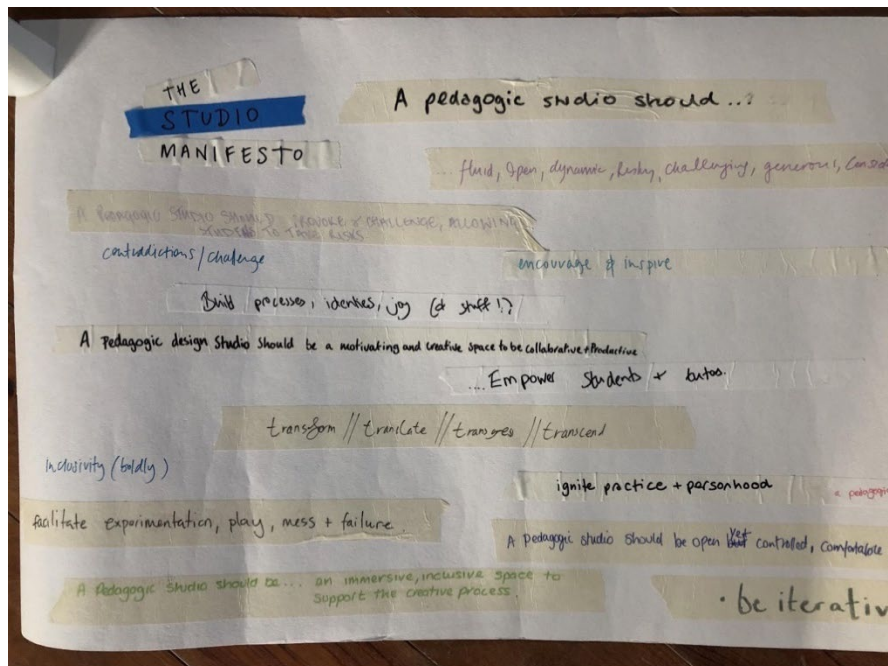 THE
STUDIO
MANIFESTO
A pedagogic studio should...?
... fluid, Open, dynamic, Risky, challenging, generous,
A PEDAGOGIC STUDIO SHOULD PROVOKE & CHALLENGE, ALLOWING
STUDENTS TO TAKE RISKS
contradictions/challenge
encourage & inspire
Build processes, identities, joy (& stuff!?)
A Pedagogic design Studio should be a motivating and creative space to be collaborative + Productive
.... Empower Students + tutos.
transform // translate // transgres // transcend
Inclusivity (boldly)
ignite practice + personhood
facilitate experimentation, play, mess + failure.
A pedagogic studio should be open yet controlled, comfortable
A Pedagogic studio should be... an immersive, inclusive space to
support the creative process.
· be iterativ